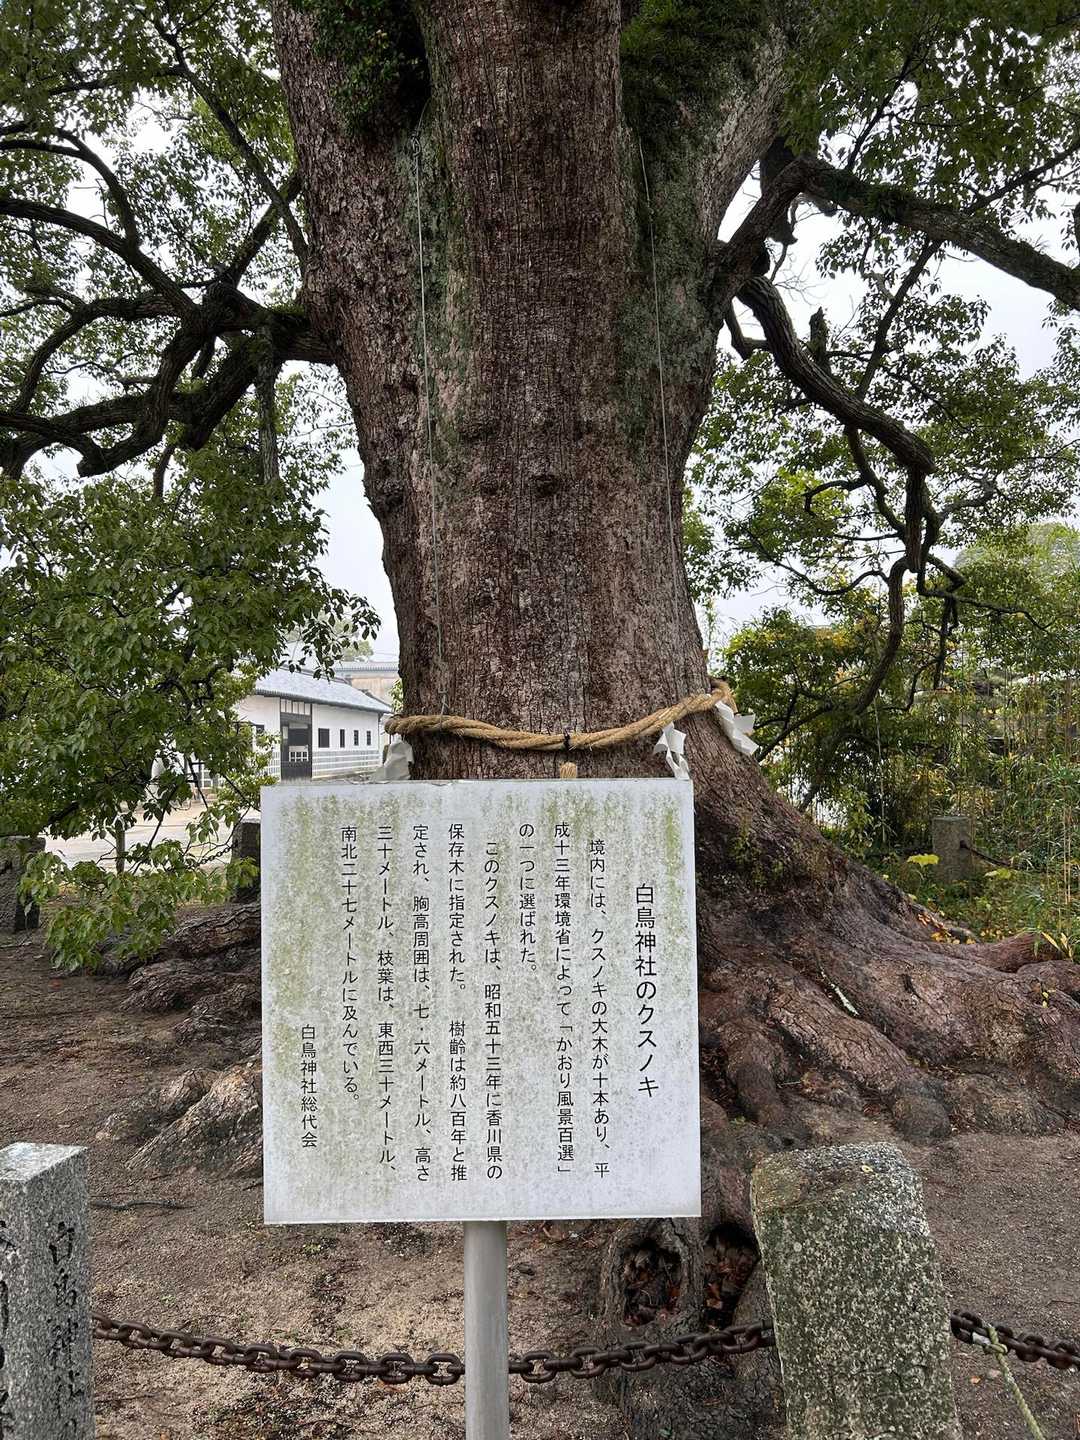 白鳥神社のクスノキ
境内には、クスノキの大木が十本あり、平
成十三年環境省によって「かおり風景百選」
の一つに選ばれた。
このクスノキは、昭和五十三年に香川県の
保存木に指定された。 樹齢は約八百年と推
定され、胸高周囲は、七・六メートル、高さ
三十メートル、枝葉は、東西三十メートル、
南北二十七メートルに及んでいる。
白鳥神社総代会
白鳥神社